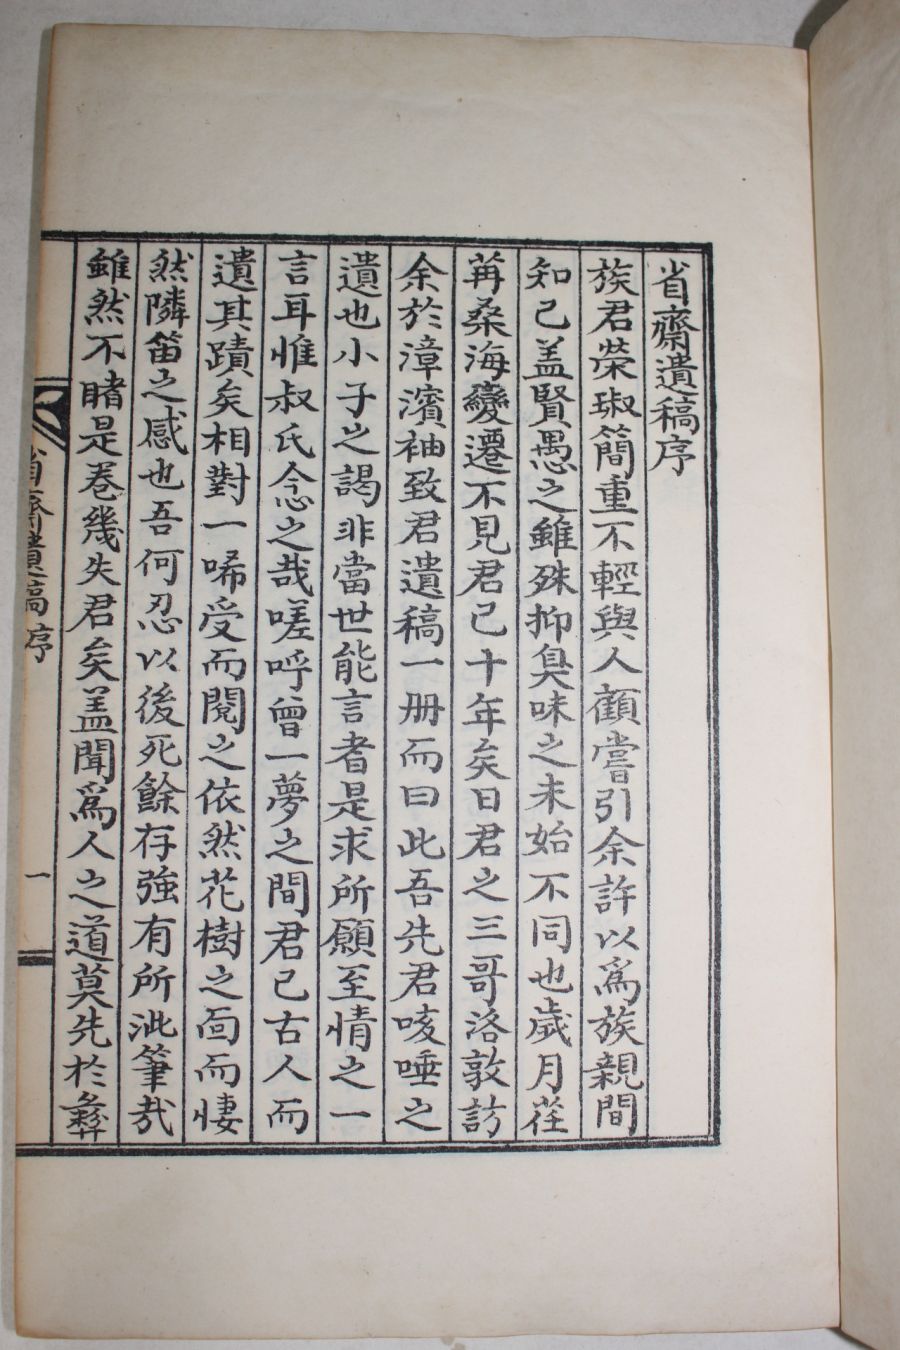 省齋遺稿序
族君榮琡簡重不輕與人顧嘗引余許以爲族親間
知己盖賢愚之雖殊抑臭味之未始不同也歲月荏
苒桑海變遷不見君已十年矣日君之三哥洛敦訪
余於漳濱袖致君遺稿一册而曰此吾先君咳唾之
遺也小子之謁非當世能言者是求所願至情之一
言耳惟叔氏念之哉嗟呼曾一夢之間君已古人而
遺其蹟矣相對一唏受而閱之依然花樹之面而悽
然隣笛之感也吾何忍以後死餘存強有所泚筆哉
雖然不睹是卷幾失君矣盖聞爲人之道莫先於彝
省齋遺稿 序 一